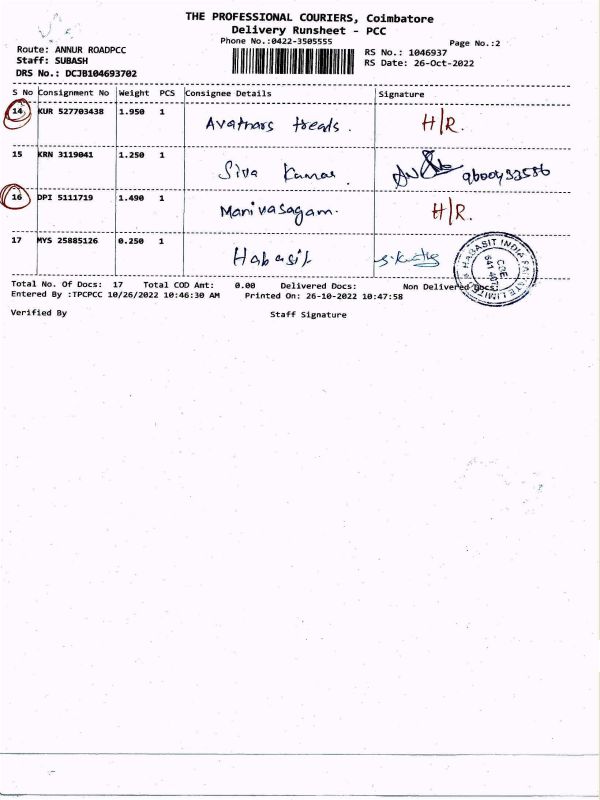 THE PROFESSIONAL COURIERS, Coimbatore
Delivery Runsheet - PCC
Phone No.:0422-3505555
Page No.:2
Route: ANNUR ROADPCC
RS No.: 1046937
Staff: SUBASH
RS Date: 26-Oct-2022
DRS No.: DCJB104693702
S No Consignment No Weight PCS Consignee Details Signature
14 KUR 527703438 1.950 1 H/R.
15 KRN 3119041 1.250 1 Siva Kumar.
16 DPI 5111719 1.490 1 Manivasagam. H/R.
17 MYS 25885126 0.250 1 Habasit
HABASIT INDIA PRIVATE LIMITED
Total No. Of Docs: 17 Total COD Amt: 0.00 Delivered Docs: Non Delivered Docs:
Entered By :TPCPCC 10/26/2022 10:46:30 AM Printed On: 26-10-2022 10:47:58
Verified By Staff Signature